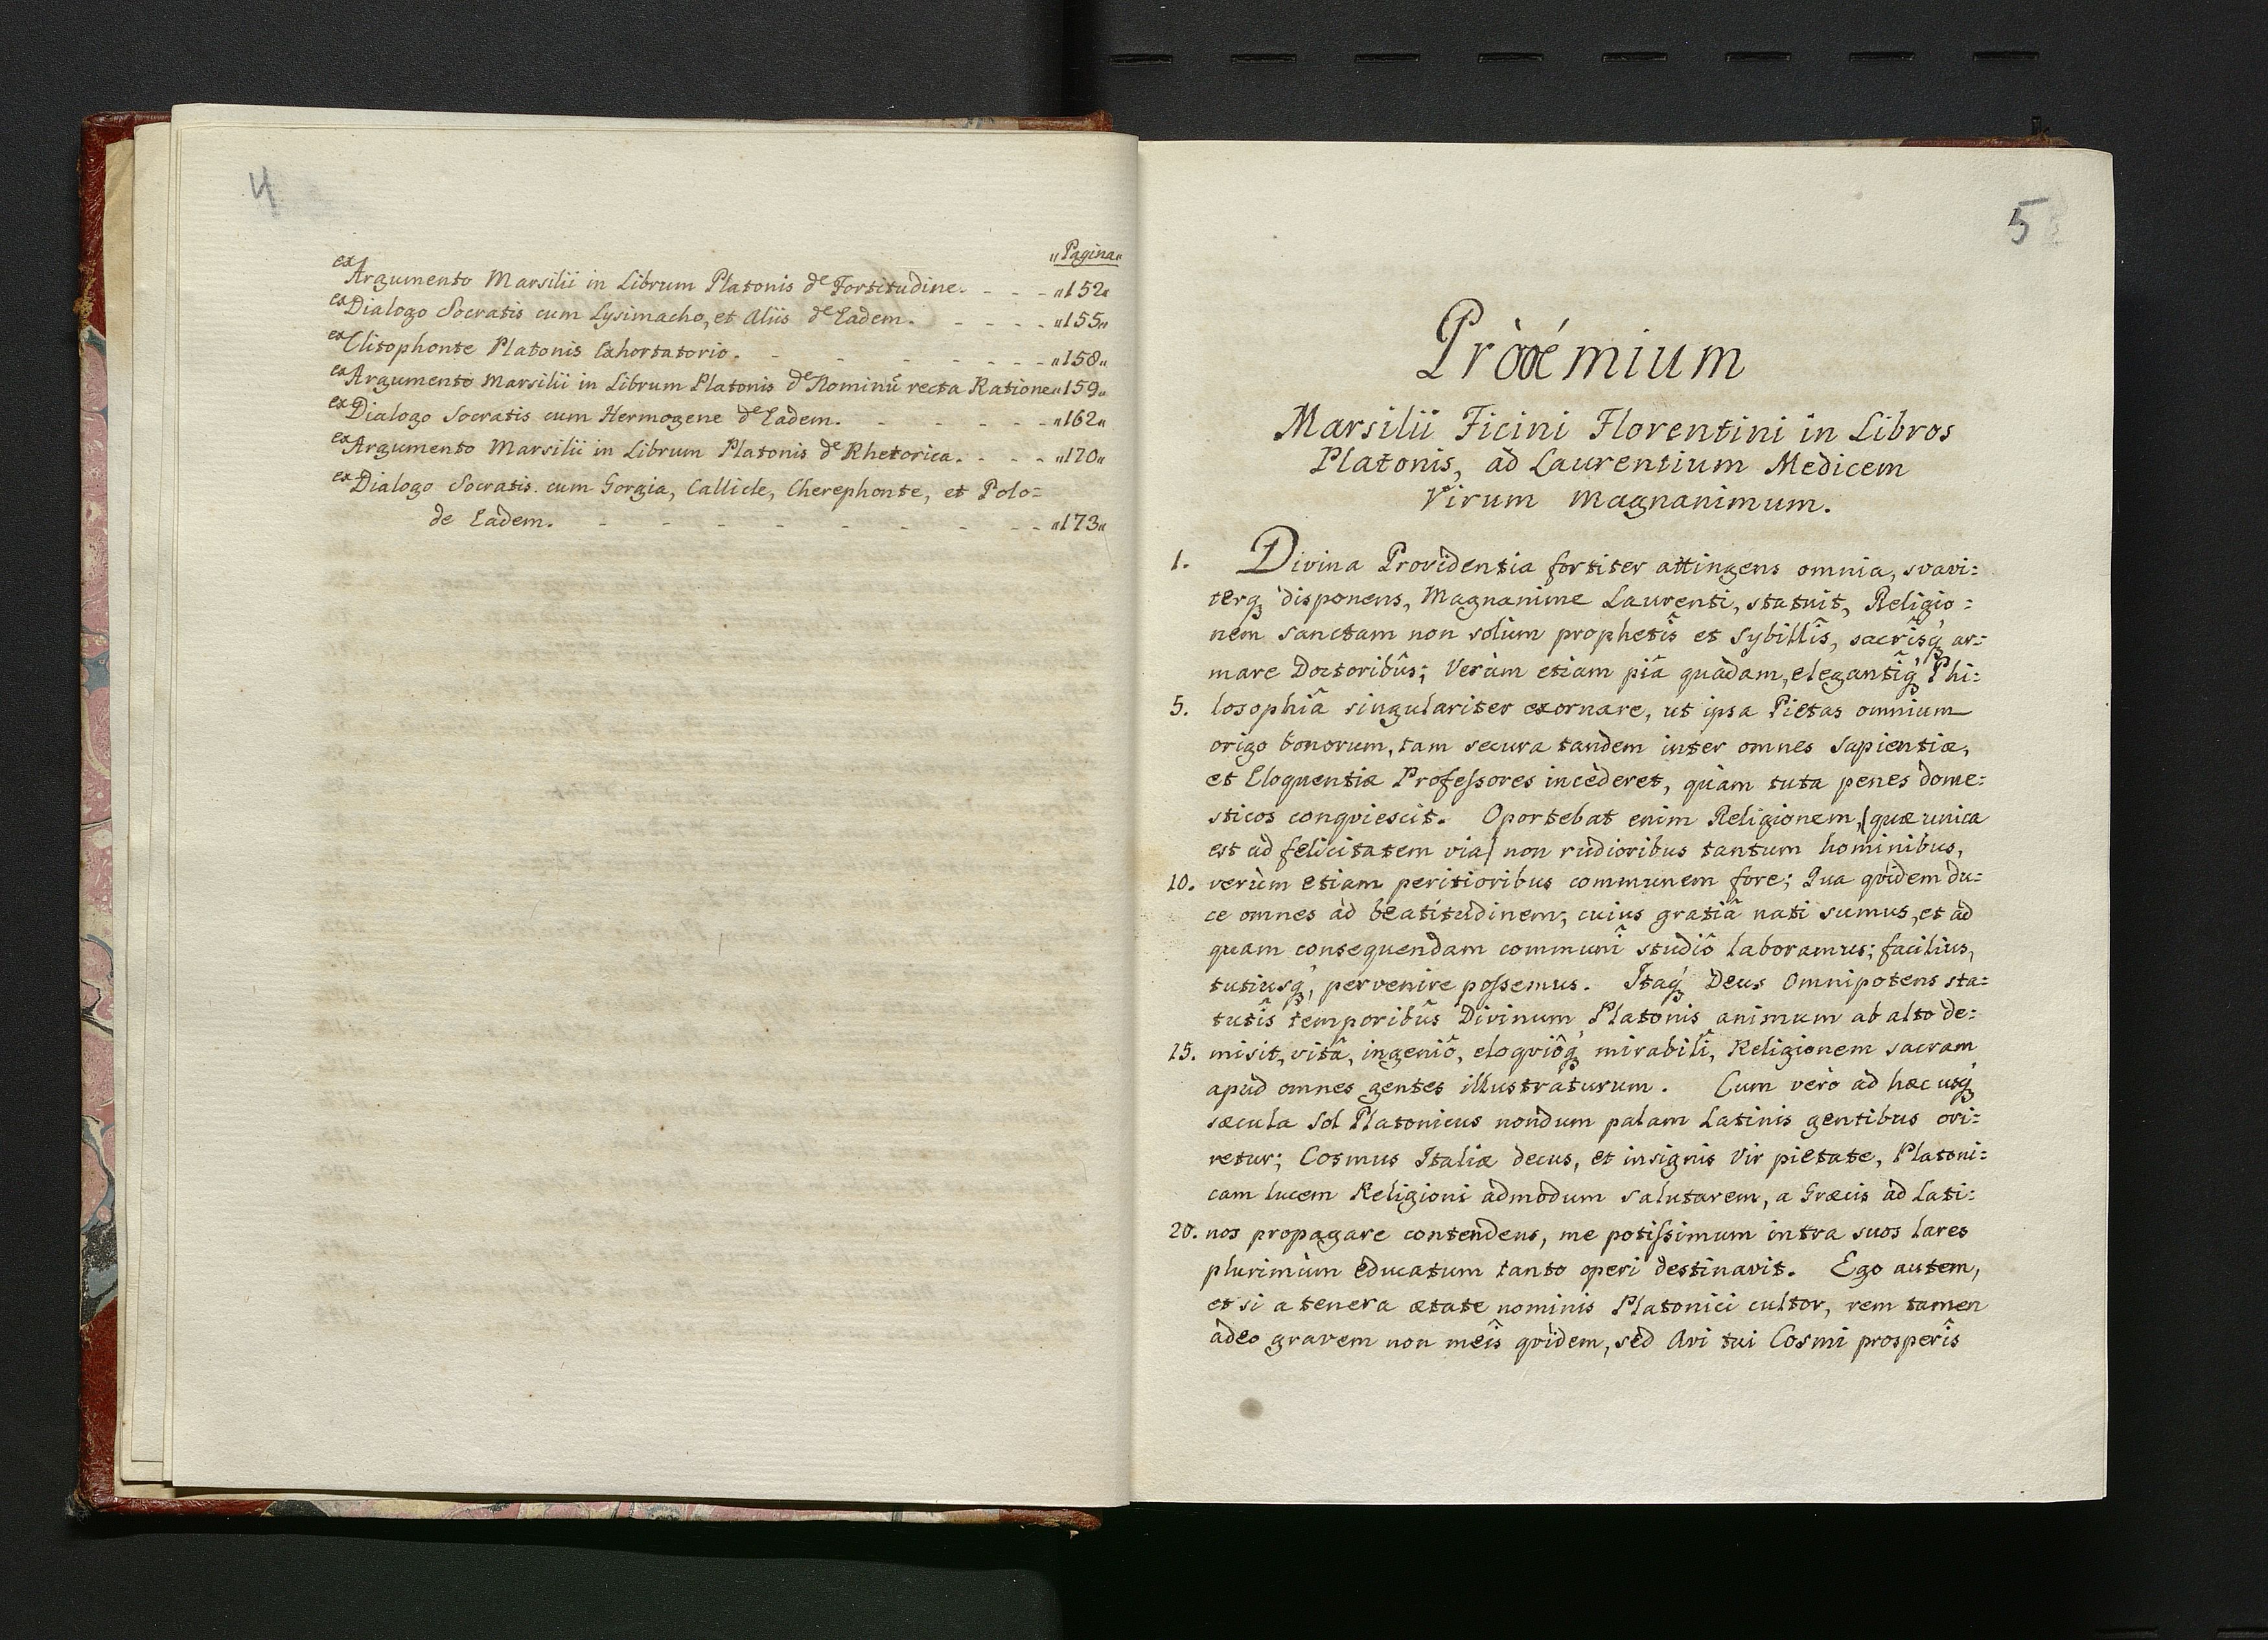 4
"Pagina"
ex Argumento Marsilii in Librum Platonis de Fortitudine. - - - "152"
ex Dialogo Socratis cum Lysimacho, et Aliis de Eadem. - - - - "155"
ex Clitophonte Platonis Exhortatorio. - - - - - - - "158"
ex Argumento Marsilii in Librum Platonis de Nominũ recta Ratione "159"
ex Dialogo Socratis cum Hermogene de Eadem. - - - - - - "162"
ex Argumento Marsilii in Librum Platonis de Rhetorica. - - - "170"
ex Dialogo Socratis cum Gorgia, Callicle, Cherephonte, et Polo=
de Eadem. - - - - - - - - - "173"
5
Pròœ́mium
Marsilii Ficini Florentini in Libros
Platonis, ad Laurentium Medicem
Virum Magnanimum.
1. Divina Providentia fortiter attingens omnia, svavi:
terq́ disponens, Magnanime Laurenti, statuit, Religio:
nem sanctam non solùm prophetîs et Sybillîs, sacrîsq́ ar:
mare Doctoribûs; Verùm etiam piâ quâdam, elegantîq́ Phi:
5. losophiâ singulariter exornare, ut ipsa Pietas omnium
origo bonorum, tam secura tandem inter omnes sapientiæ,
et Eloquentiæ Profeſsores incederet, quàm tuta penes dome:
sticos conqviescit. Oportebat enim Religionem, (quæ unica
est ad felicitatem via) non rudioribus tantum hominibus,
10. verùm etiam peritioribus communem fore; Qua qvidem du:
ce omnes ad beatitudinem, cuius gratiâ nati sumus, et ad
quam consequendam communî studiô laboramus; facilius,
tutiusq́, pervenire poſsemus. Itaq́ Deus Omnipotens sta:
tutîs temporibûs Divinum Platonis animum ab alto de:
15. misit, vitâ, ingeniô, eloqviôq́ mirabilî, Religionem sacram
apud omnes gentes illustraturum. Cum verò ad hæc usq́
sæcula Sol Platonicus nondum palam Latinis gentibus ori:
retur; Cosmus Italiæ decus, et insignis Vir pietate, Platoni:
cam lucem Religioni admodum salutarem, a Græcis ad Lati:
20. nos propagare contendens, me potiſsimum intra suos lares
plurimùm educatum tanto operi destinavit. Ego autem,
et si a tenera ætate nominis Platonici cultor, rem tamen
adeo gravem non meîs qvidem, sed Avi tui Cosmi prosperîs